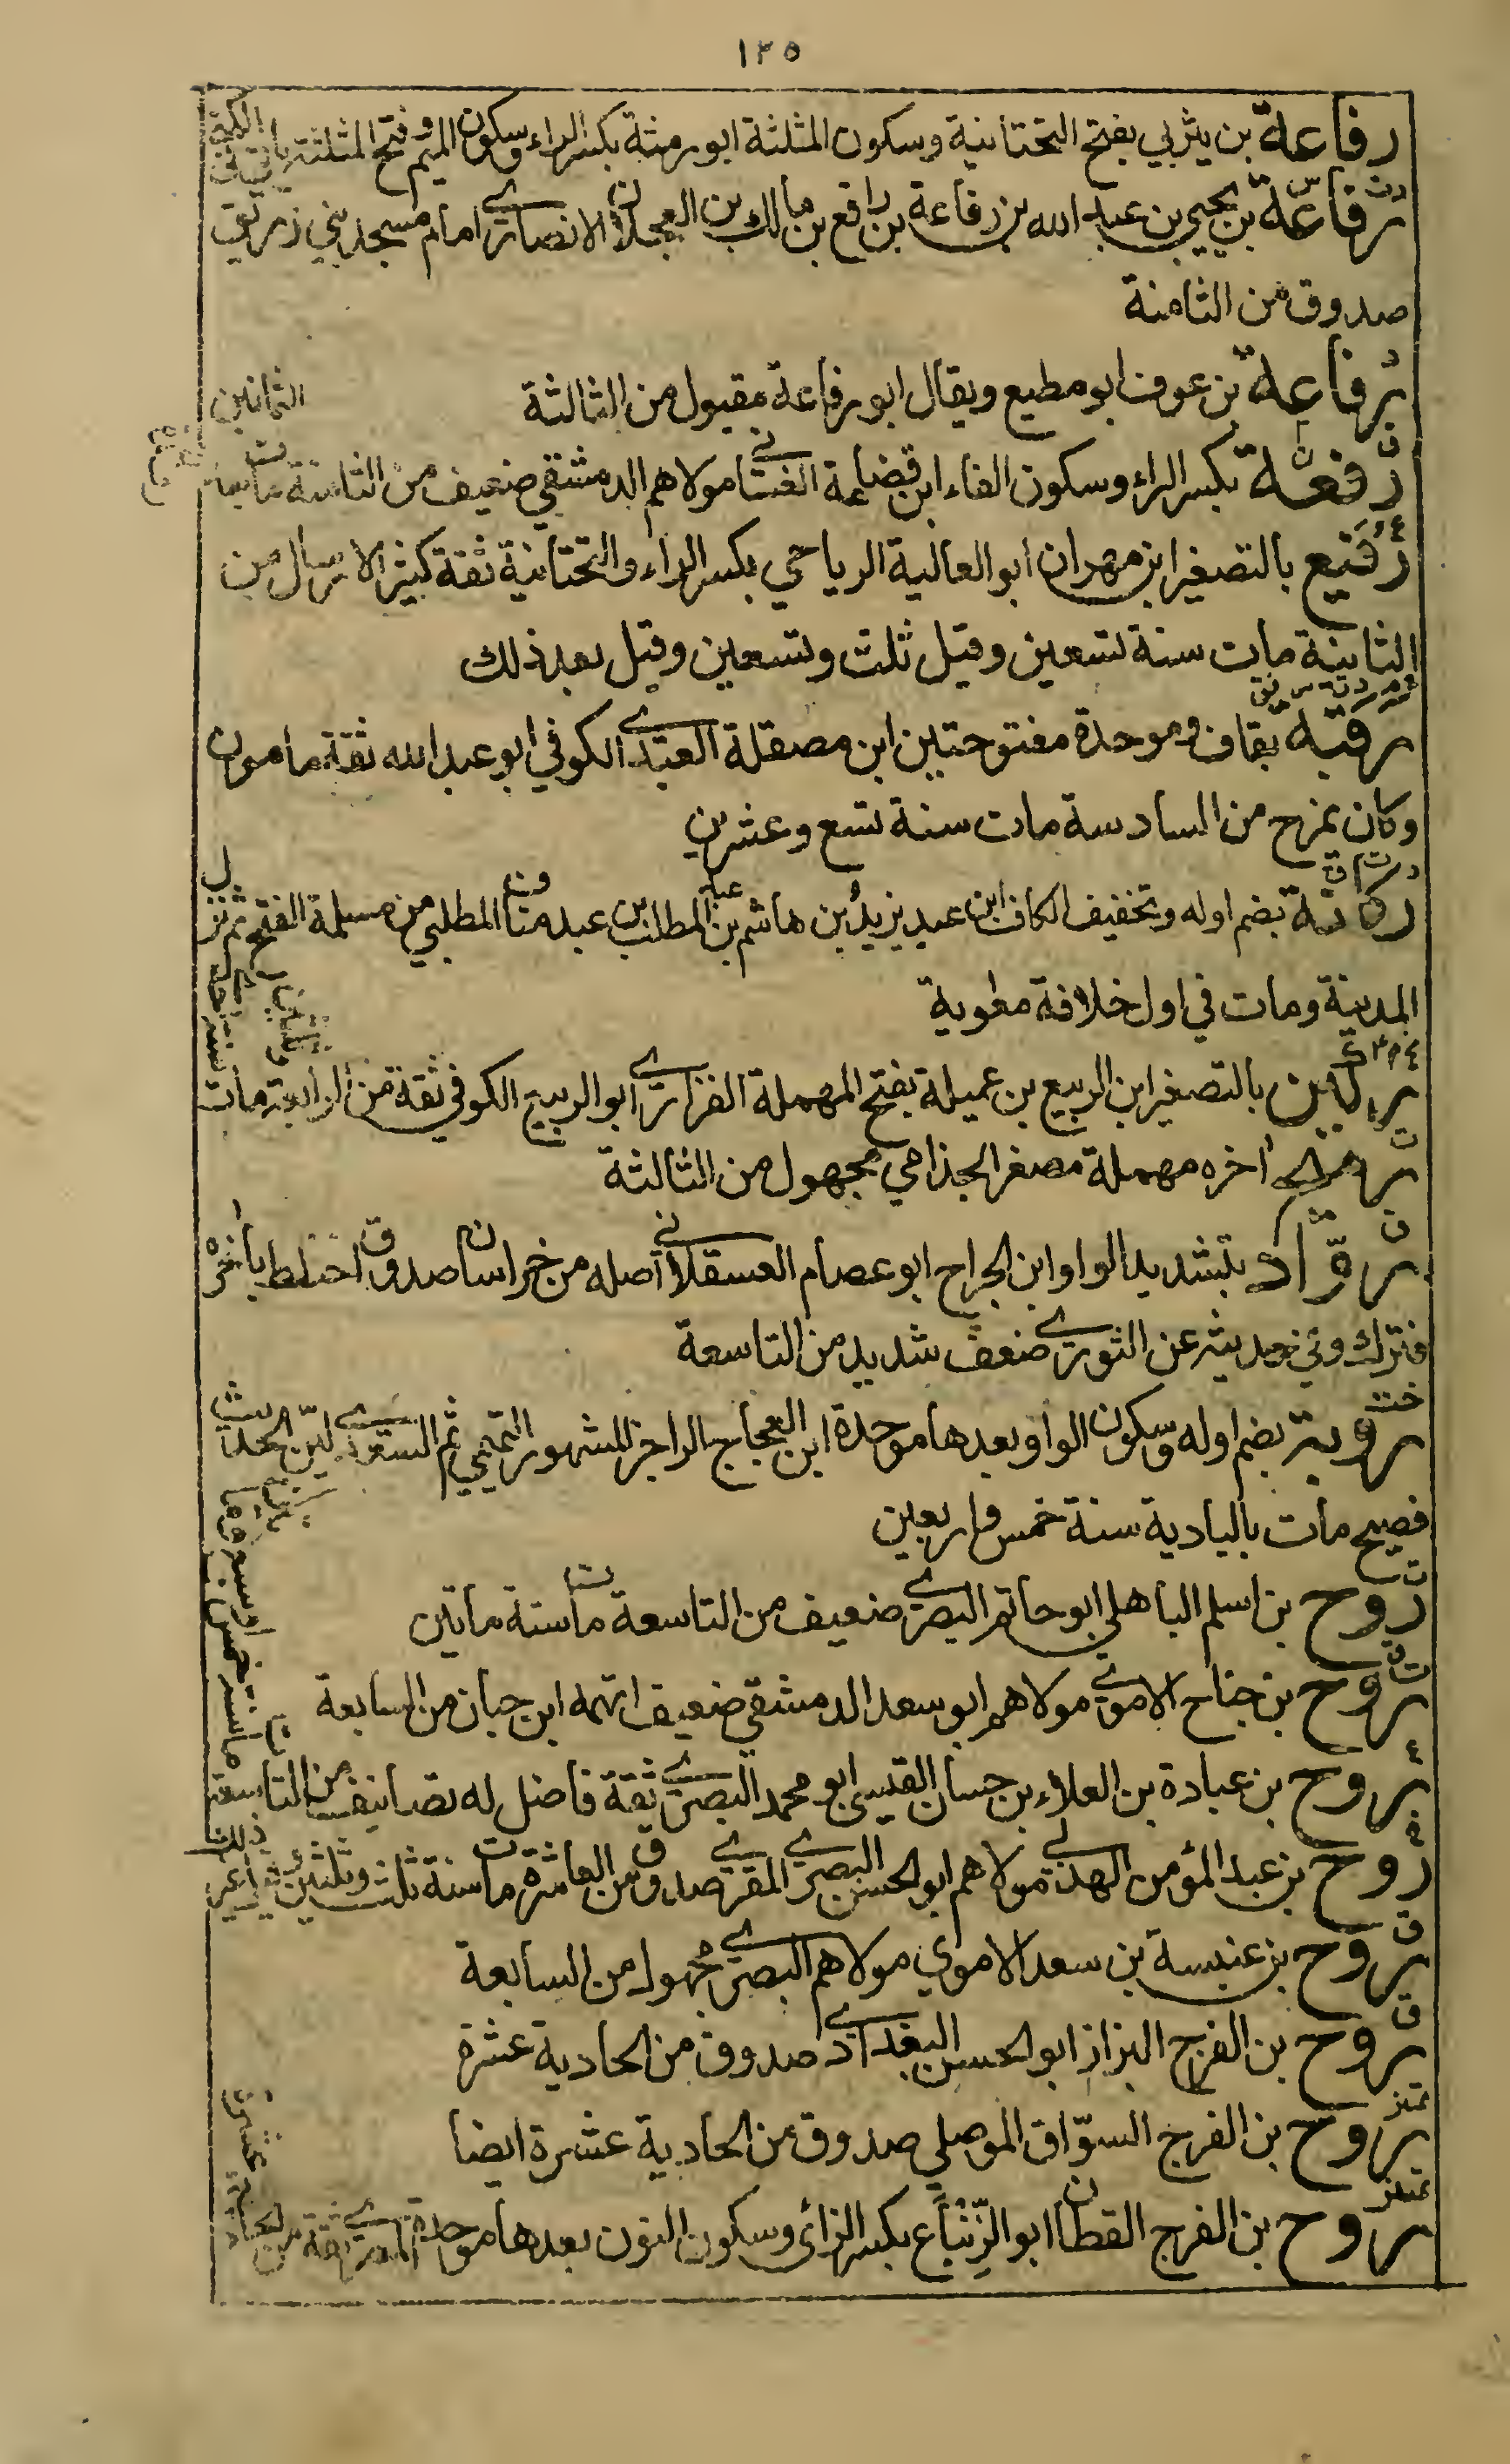 ١٢٥
رفاعة بن يثربي بفتح التحتانية وسكون المثلثة ابو رمثة بكسر الراء وسكون الميم وفتح المثلثة ياتي في الكنى
رفاعة بن يحيى بن عبد الله بن رفاعة بن رافع بن مالك بن العجلان الانصاري امام مسجد بني زريق
صدوق من الثامنة
رفاعة بن عوف ابو مطيع ويقال ابو رفاعة مقبول من الثالثة
رفعة بكسر الراء وسكون الفاء ابن قضاعة الغساني مولاهم الدمشقي ضعيف من الثامنة مات بعد الثمانين
رفيع بالتصغير ابن مهران ابو العالية الرياحي بكسر الراء والتحتانية ثقة كثير الارسال من
الثانية مات سنة تسعين وقيل ثلث وتسعين وقيل بعد ذلك
رقبة بقاف وموحدة مفتوحتين ابن مصقلة العبدي الكوفي ابو عبد الله ثقة مامون
وكان يمزح من السادسة مات سنة تسع وعشرين
ركانة بضم اوله وتخفيف الكاف ابن عبد يزيد بن هاشم بن المطلب بن عبد مناف المطلبي من مسلمة الفتح ثم نزل
المدينة ومات في اول خلافة معوية
ركين بالتصغير ابن الربيع بن عميلة بفتح المهملة الفزاري ابو الربيع الكوفي ثقة من الرابعة مات سنة احدى وثلثين
رميح اخره مهملة مصغر الجذامي مجهول من الثالثة
روّاد بتشديد الواو ابن الجراح ابو عصام العسقلاني اصله من خراسان صدوق اختلط باخره
فترك وفي حديثه عن الثوري ضعف شديد من التاسعة
روبة بضم اوله وسكون الواو بعدها موحدة ابن العجاج الراجز المشهور التميمي ثم السعدي لين الحديث
فصيح مات بالبادية سنة خمس واربعين
روح بن اسلم الباهلي ابو حاتم البصري ضعيف من التاسعة مات سنة ماتين
روح بن جناح الاموي مولاهم ابو سعد الدمشقي ضعيف اتهمه ابن حبان من السابعة
روح بن عبادة بن العلاء بن حسان القيسي ابو محمد البصري ثقة فاضل له تصانيف من التاسعة مات سنة خمس او سبع وماتين
روح بن عبد المؤمن الهذلي مولاهم ابو الحسن البصري المقري صدوق من العاشرة مات سنة ثلث وثلثين
روح بن عنبسة بن سعد الاموي مولاهم البصري مجهول من السابعة
روح بن الفرج البزاز ابو الحسن البغدادي صدوق من الحادية عشرة
روح بن الفرج السوّاق الموصلي صدوق من الحادية عشرة ايضا
روح بن الفرج القطان ابو الزِّنْبَاع بكسر الزائ وسكون النون بعدها موحدة المصري ثقة من الحادية عشرة